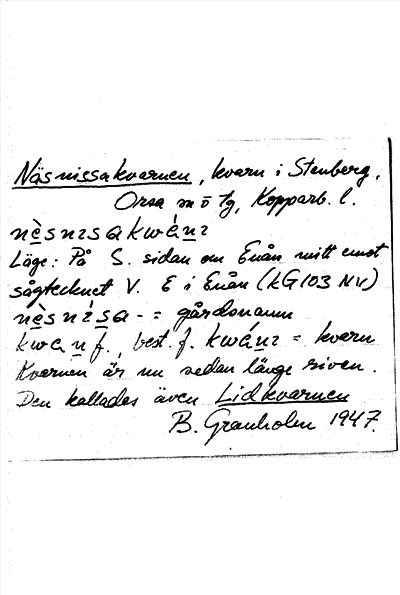 Näsnissakvarnen, kvarn i Stenberg,
Orsa sn o tg, Kopparb. l.
nèsnɪsakwánɪ
Läge: På S. sidan om Enån mitt emot
sågtecknet V. E i Enån (KG103 NV)
nèsnɪ́sa - = gårdsnamn
kwan f., best. f. kwánɪ = kvarn
Kvarnen är nu sedan länge riven.
Den kallades även Lidkvarnen
B. Granholm 1947.